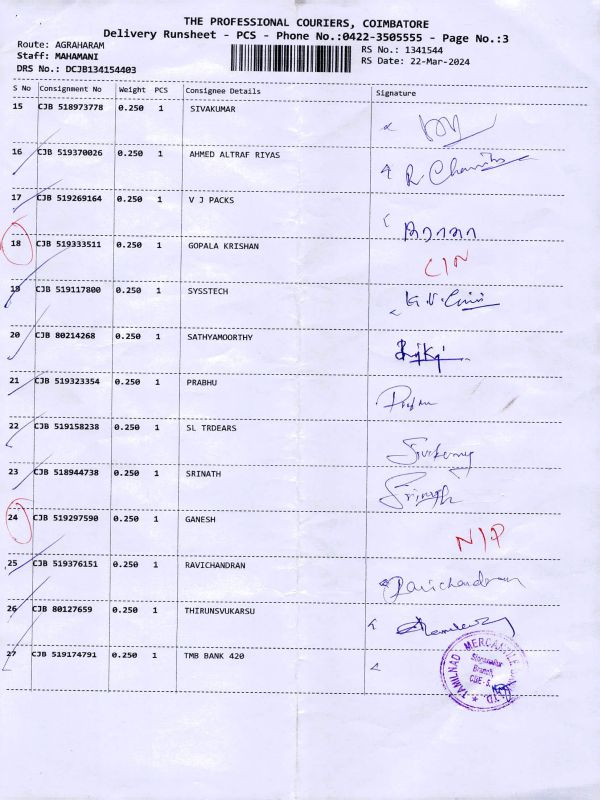 THE PROFESSIONAL COURIERS, COIMBATORE
Delivery Runsheet - PCS - Phone No.:0422-3505555 - Page No.:3
Route: AGRAHARAM
Staff: MAHAMANI
DRS No.: DCJB134154403
RS No.: 1341544
RS Date: 22-Mar-2024
S No Consignment No Weight PCS Consignee Details Signature
15 CJB 518973778 0.250 1 SIVAKUMAR
16 CJB 519370026 0.250 1 AHMED ALTRAF RIYAS
17 CJB 519269164 0.250 1 V J PACKS
18 CJB 519333511 0.250 1 GOPALA KRISHAN
C/N
19 CJB 519117800 0.250 1 SYSSTECH
20 CJB 80214268 0.250 1 SATHYAMOORTHY
21 CJB 519323354 0.250 1 PRABHU
22 CJB 519158238 0.250 1 SL TRDEARS
23 CJB 518944738 0.250 1 SRINATH
24 CJB 519297590 0.250 1 GANESH
N/P
25 CJB 519376151 0.250 1 RAVICHANDRAN
Ravichandran
26 CJB 80127659 0.250 1 THIRUNSVUKARSU
27 CJB 519174791 0.250 1 TMB BANK 420
TAMILNAD MERCANTILE
Branch